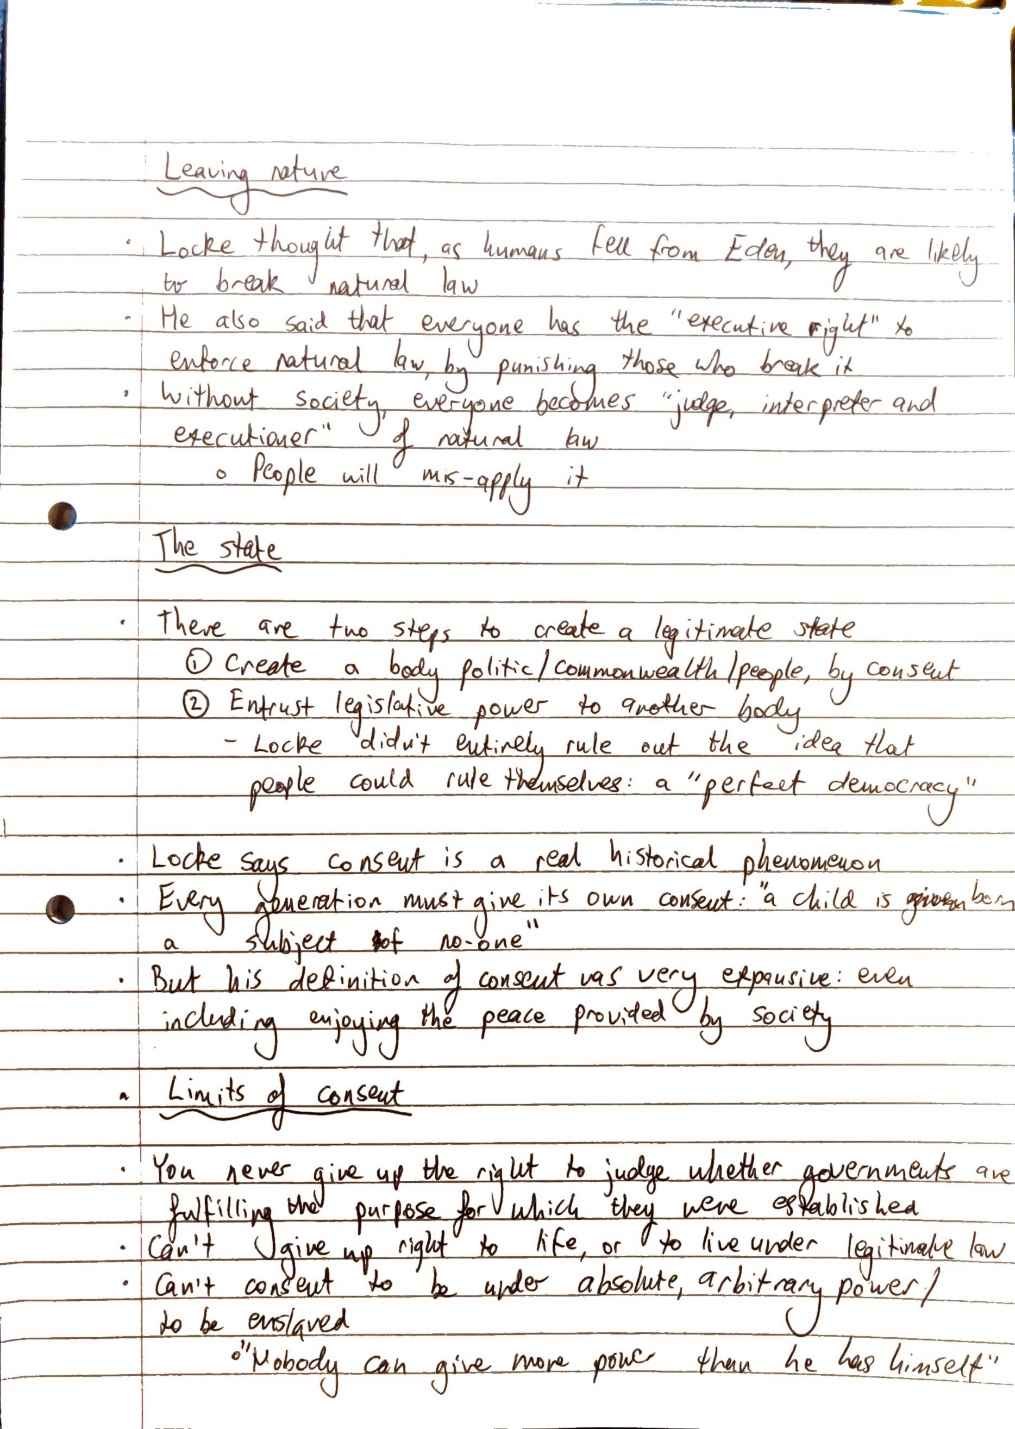 Leaving nature
· Locke thought that, as humans fell from Eden, they are likely
to break natural law
· He also said that everyone has the "executive right" to
enforce natural law, by punishing those who break it
· Without society, everyone becomes "judge, interpreter and
executioner" of natural law
o People will mis-apply it
The state
· There are two steps to create a legitimate state
① Create a body politic/commonwealth/people, by consent
② Entrust legislative power to another body
- Locke didn't entirely rule out the idea that
people could rule themselves: a "perfect democracy"
· Locke says consent is a real historical phenomenon
· Every generation must give its own consent: "a child is born
a subject of no-one"
· But his definition of consent was very expansive: even
including enjoying the peace provided by society
· Limits of consent
· You never give up the right to judge whether governments are
fulfilling the purpose for which they were established
· Can't give up right to life, or to live under legitimate law
· Can't consent to be under absolute, arbitrary power/
to be enslaved
o "Nobody can give more power than he has himself"